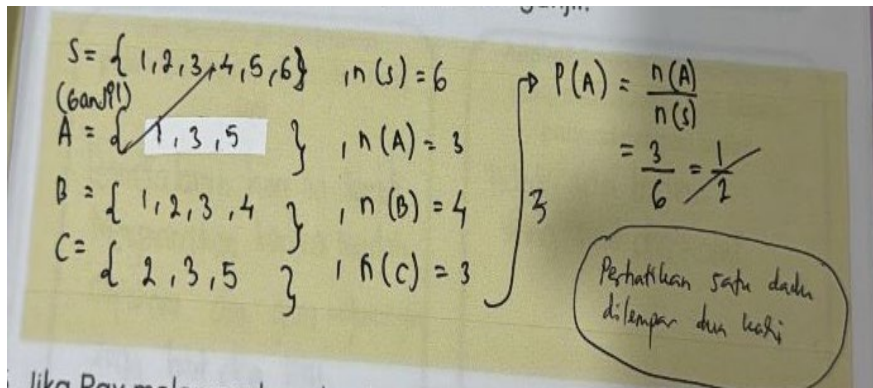 S = { 1, 2, 3, 4, 5, 6 } , n (S) = 6
(Ganjil)
A = { 1, 3, 5 } , n (A) = 3
B = { 1, 2, 3, 4 } , n (B) = 4
C = { 2, 3, 5 } , n (C) = 3
P(A) = n(A) / n(S)
= 3/6 = 1/2
3
Perhatikan satu dadu
dilempar dua kali
Jika Ray